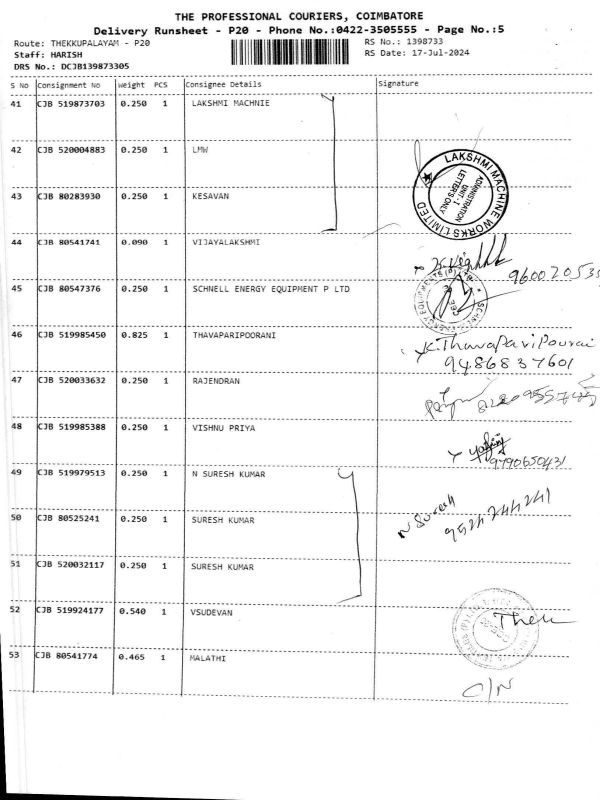 THE PROFESSIONAL COURIERS, COIMBATORE
Delivery Runsheet - P20 - Phone No.:0422-3505555 - Page No.:5
Route: THEKKUPALAYAM - P20 RS No.: 1398733
Staff: HARISH RS Date: 17-Jul-2024
DRS No.: DCJB139873305
S No Consignment No Weight PCS Consignee Details Signature
41 CJB 519873703 0.250 1 LAKSHMI MACHNIE
42 CJB 520004883 0.250 1 LMW
LAKSHMI MACHINE WORKS LIMITED
ADMINISTRATION
UNIT - I
LETTERS ONLY
43 CJB 80283930 0.250 1 KESAVAN
44 CJB 80541741 0.090 1 VIJAYALAKSHMI
45 CJB 80547376 0.250 1 SCHNELL ENERGY EQUIPMENT P LTD
46 CJB 519985450 0.825 1 THAVAPARIPOORANI
K.ThavaPariPourai
9486837601
47 CJB 520033632 0.250 1 RAJENDRAN
48 CJB 519985388 0.250 1 VISHNU PRIYA
9790650431
49 CJB 519979513 0.250 1 N SURESH KUMAR
N Suresh
50 CJB 80525241 0.250 1 SURESH KUMAR
51 CJB 520032117 0.250 1 SURESH KUMAR
52 CJB 519924177 0.540 1 VSUDEVAN
53 CJB 80541774 0.465 1 MALATHI
C/N